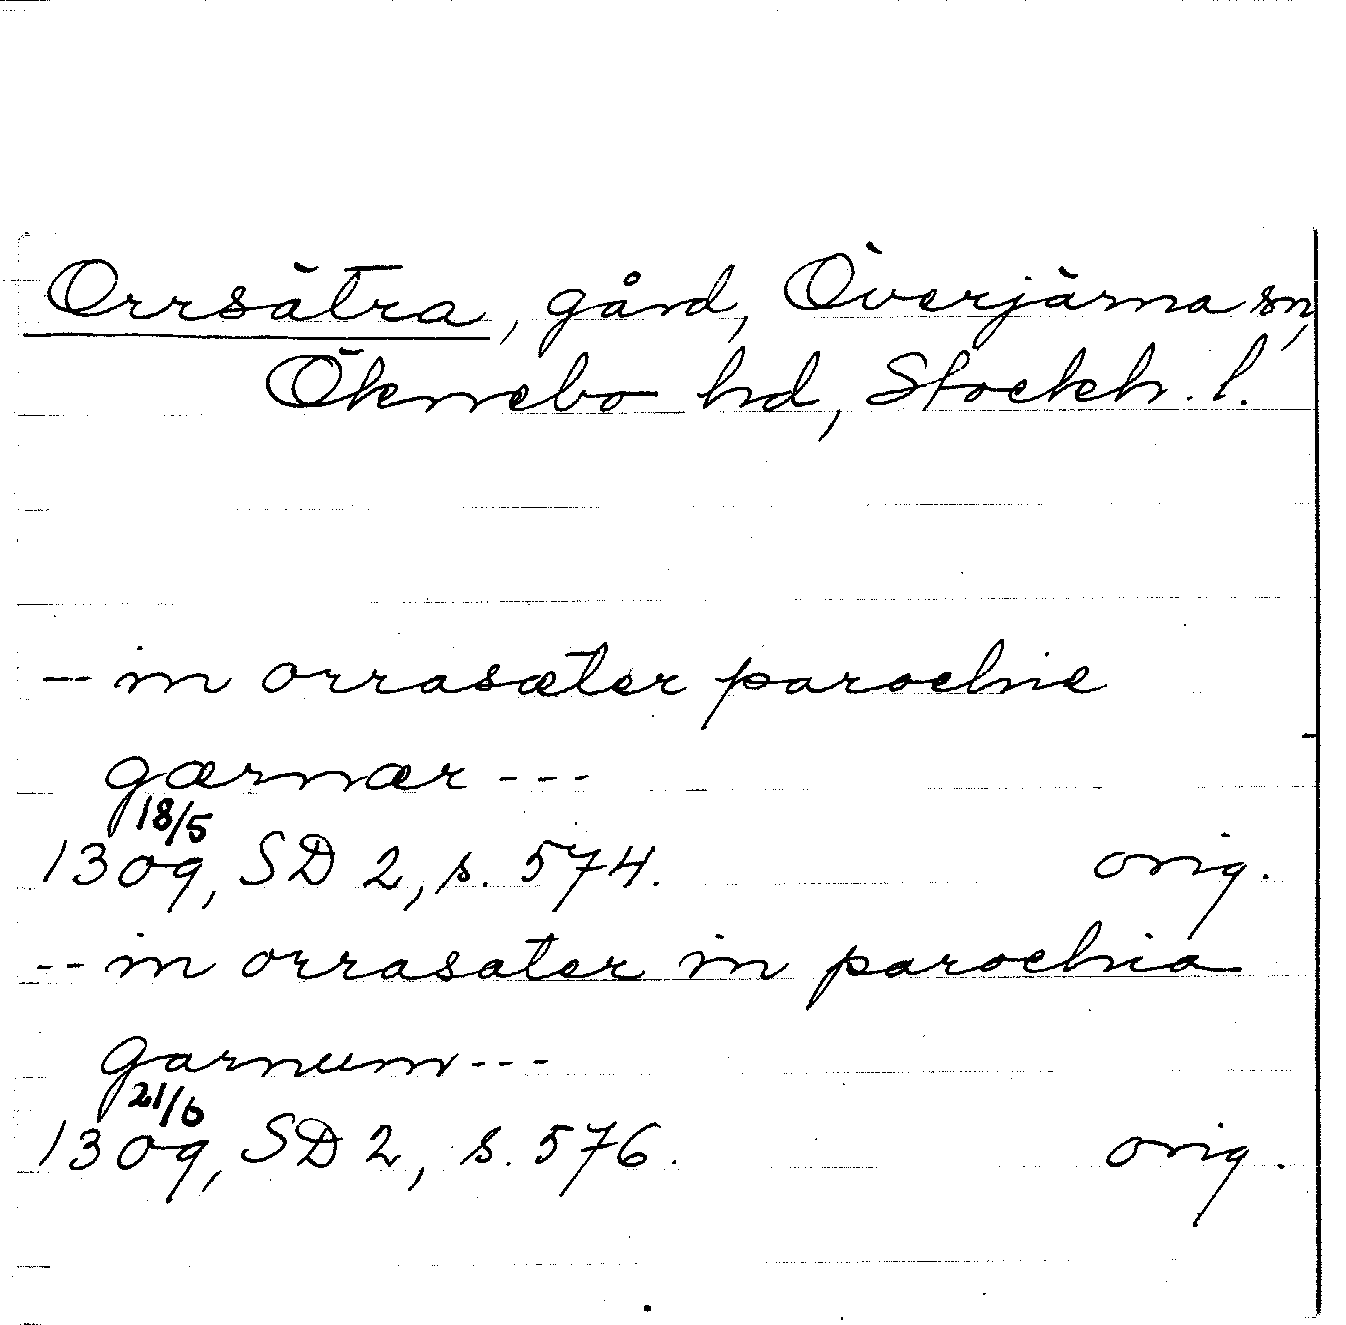 Orrsätra, gård, Överjärna sn,
Öknebo hd, Stockh. l.
-- in orrasæter parochie
gærnær ---
18/5
1309, SD 2, s. 574. orig.
-- in orrasater in parochia
garnum ---
21/6
1309, SD 2, s. 576. orig.